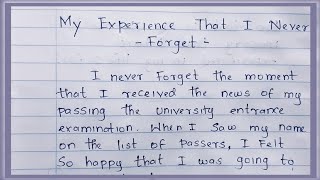 My Experience That I Never
- Forget -
I never Forget the moment
that I received the news of my
passing the university entrance
examination. When I saw my name
on the list of passers, I Felt
So happy that I was going to